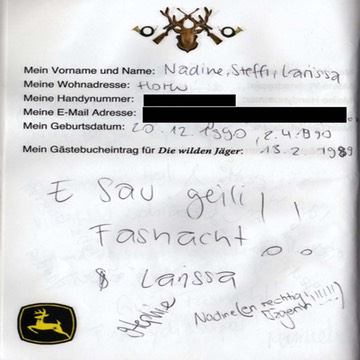 Mein Vorname und Name: Nadine, Steffi, Larissa
Meine Wohnadresse: Horw
Meine Handynummer:
Meine E-Mail Adresse:
Mein Geburtsdatum: 20.12.1990, 2.4.890
Mein Gästebucheintrag für Die wilden Jäger: 13.2 1989
E Sau geili,,
Fasnacht
Larissa
Stephie
Nadine (en rechtig
Jägerin!!!!!!)